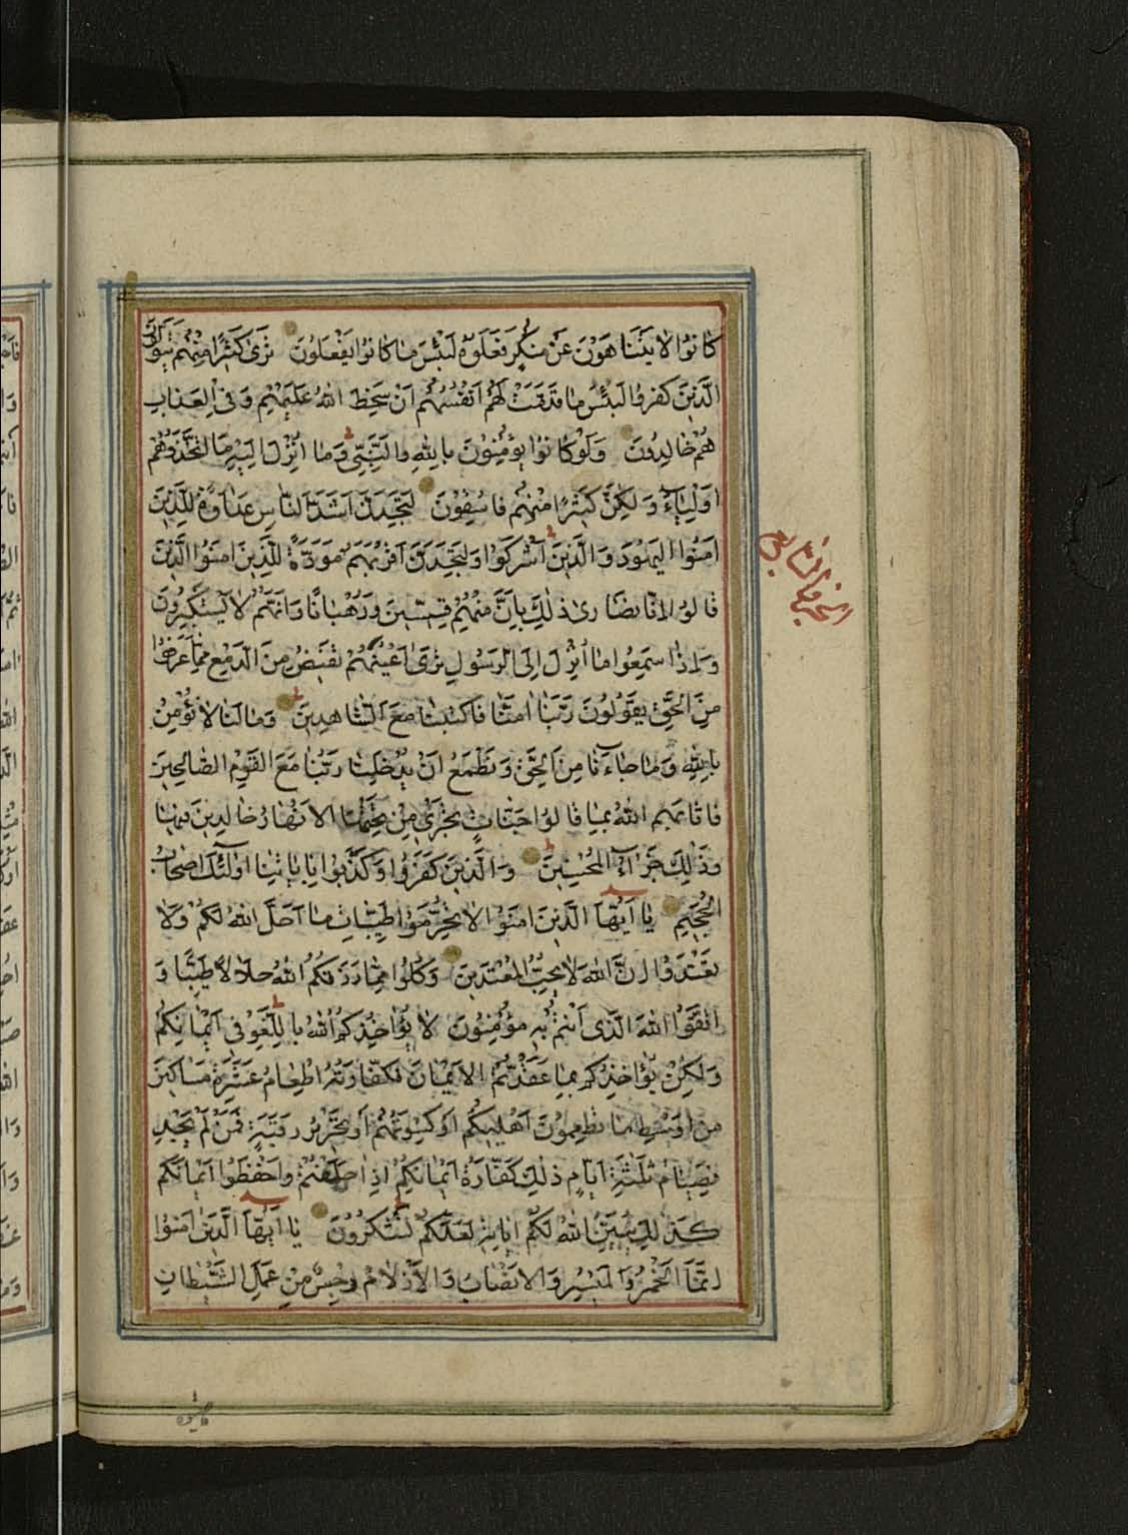 كَانُوا لَا يَتَنَاهَوْنَ عَنْ مُنْكَرٍ فَعَلُوهُ لَبِئْسَ مَا كَانُوا يَفْعَلُونَ تَرَىٰ كَثِيرًا مِنْهُمْ يَتَوَلَّوْنَ
الَّذِينَ كَفَرُوا لَبِئْسَ مَا قَدَّمَتْ لَهُمْ أَنْفُسُهُمْ أَنْ سَخِطَ اللهُ عَلَيْهِمْ وَفِي الْعَذَابِ
هُمْ خَالِدُونَ وَلَوْ كَانُوا يُؤْمِنُونَ بِاللهِ وَالنَّبِيِّ وَمَا أُنْزِلَ إِلَيْهِ مَا اتَّخَذُوهُمْ
أَوْلِيَاءَ وَلَكِنَّ كَثِيرًا مِنْهُمْ فَاسِقُونَ لَتَجِدَنَّ أَشَدَّ النَّاسِ عَدَاوَةً لِلَّذِينَ
اٰمَنُوا الْيَهُودَ وَالَّذِينَ أَشْرَكُوا وَلَتَجِدَنَّ أَقْرَبَهُمْ مَوَدَّةً لِلَّذِينَ اٰمَنُوا الَّذِينَ
قَالُوا إِنَّا نَصَارَىٰ ذٰلِكَ بِأَنَّ مِنْهُمْ قِسِّيسِينَ وَرُهْبَانًا وَأَنَّهُمْ لَا يَسْتَكْبِرُونَ
وَإِذَا سَمِعُوا مَا أُنْزِلَ إِلَى الرَّسُولِ تَرَىٰ أَعْيُنَهُمْ تَفِيضُ مِنَ الدَّمْعِ مِمَّا عَرَفُوا
مِنَ الْحَقِّ يَقُولُونَ رَبَّنَا اٰمَنَّا فَاكْتُبْنَا مَعَ الشَّاهِدِينَ وَمَا لَنَا لَا نُؤْمِنُ
بِاللهِ وَمَا جَاءَنَا مِنَ الْحَقِّ وَنَطْمَعُ أَنْ يُدْخِلَنَا رَبُّنَا مَعَ الْقَوْمِ الصَّالِحِينَ
فَأَثَابَهُمُ اللهُ بِمَا قَالُوا جَنَّاتٍ تَجْرِي مِنْ تَحْتِهَا الْأَنْهَارُ خَالِدِينَ فِيهَا
وَذٰلِكَ جَزَاءُ الْمُحْسِنِينَ وَالَّذِينَ كَفَرُوا وَكَذَّبُوا بِاٰيَاتِنَا أُولٰئِكَ أَصْحَابُ
الْجَحِيمِ يَا أَيُّهَا الَّذِينَ اٰمَنُوا لَا تُحَرِّمُوا طَيِّبَاتِ مَا أَحَلَّ اللهُ لَكُمْ وَلَا
تَعْتَدُوا إِنَّ اللهَ لَا يُحِبُّ الْمُعْتَدِينَ وَكُلُوا مِمَّا رَزَقَكُمُ اللهُ حَلَالًا طَيِّبًا وَ
اتَّقُوا اللهَ الَّذِي أَنْتُمْ بِهِ مُؤْمِنُونَ لَا يُؤَاخِذُكُمُ اللهُ بِاللَّغْوِ فِي أَيْمَانِكُمْ
وَلٰكِنْ يُؤَاخِذُكُمْ بِمَا عَقَّدْتُمُ الْأَيْمَانَ فَكَفَّارَتُهُ إِطْعَامُ عَشَرَةِ مَسَاكِينَ
مِنْ أَوْسَطِ مَا تُطْعِمُونَ أَهْلِيكُمْ أَوْ كِسْوَتُهُمْ أَوْ تَحْرِيرُ رَقَبَةٍ فَمَنْ لَمْ يَجِدْ
فَصِيَامُ ثَلٰثَةِ أَيَّامٍ ذٰلِكَ كَفَّارَةُ أَيْمَانِكُمْ إِذَا حَلَفْتُمْ وَاحْفَظُوا أَيْمَانَكُمْ
كَذٰلِكَ يُبَيِّنُ اللهُ لَكُمْ اٰيَاتِهِ لَعَلَّكُمْ تَشْكُرُونَ يَا أَيُّهَا الَّذِينَ اٰمَنُوا
إِنَّمَا الْخَمْرُ وَالْمَيْسِرُ وَالْأَنْصَابُ وَالْأَزْلَامُ رِجْسٌ مِنْ عَمَلِ الشَّيْطَانِ
الجزء السابع